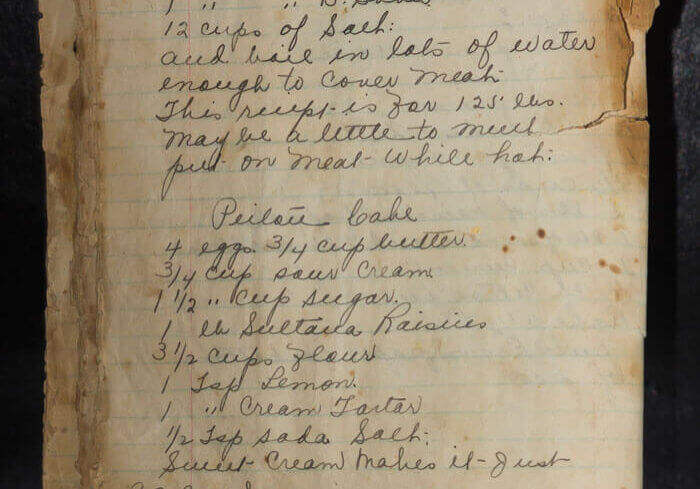 1 " " B. Soda
12 cups of Salt.
and boil in lots of water
enough to cover meat
This reciept is for 125 lbs.
May be a little to much
put on meat while hot.
Cake
4 eggs. 3/4 cup butter.
3/4 cup sour cream
1 1/2 " cup sugar.
1 lb Sultana Raisins
3 1/2 cups flour
1 Tsp Lemon.
1 " Cream Tartar
1/2 Tsp soda Salt.
Sweet Cream makes it Just